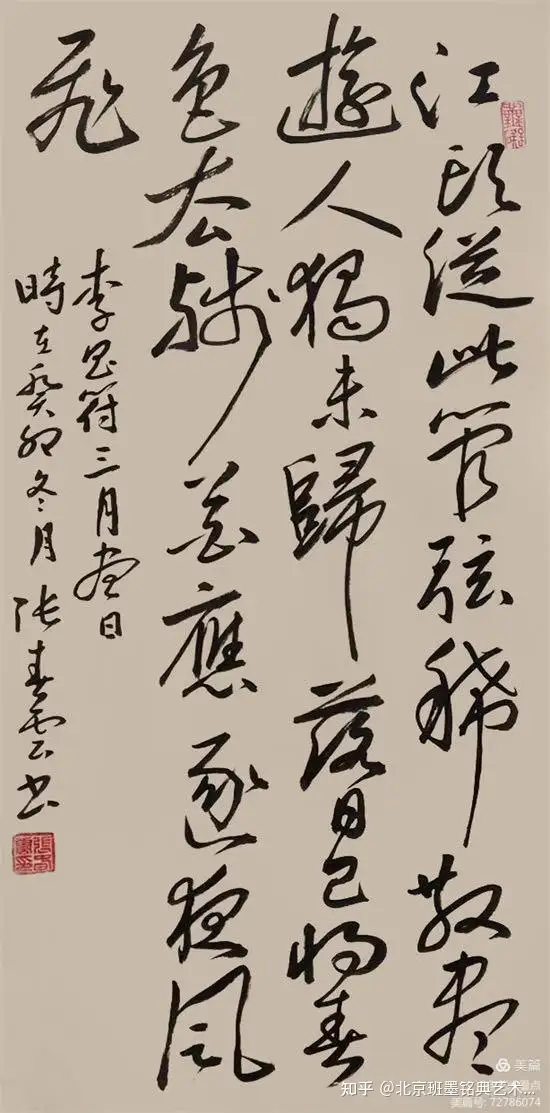 江頭從此管弦稀散盡
遊人獨未歸落日已將春
色去殘花應逐夜風
飛
李昌符三月盡日
時在癸卯冬月張春雲書
美篇
知乎 @北京班墨铭典艺术...
美篇号: 72786074